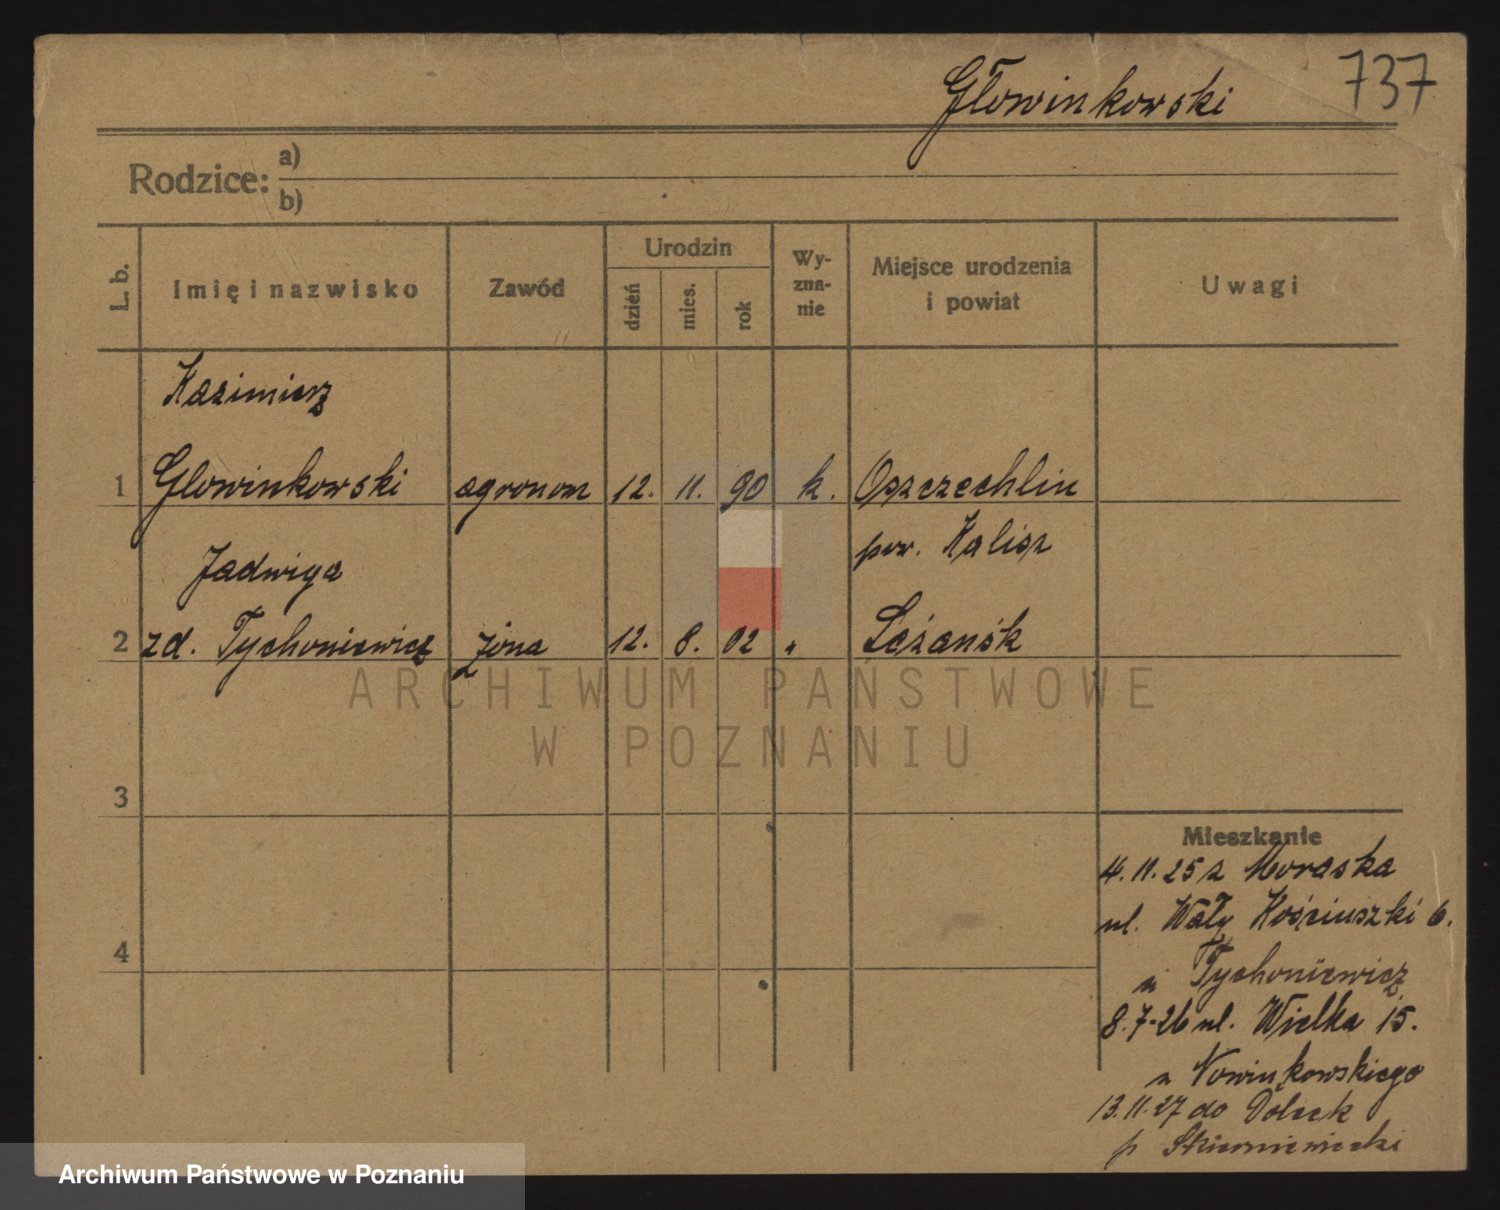 Głowinkowski 737
Rodzice: a)
b)
L. b. Imię i nazwisko Zawód Urodzin dzień mies. rok Wy-zna-nie Miejsce urodzenia i powiat Uwagi
Kazimierz
1 Glowinkowski agronom 12. 11. 90 k. Opszczechlin
pow. Kalisz
Jadwiga
2 zd. Tychoniewicz żona 12. 8. 02 " Leżańsk
3
4
Mieszkanie
4. 11. 25 z Moraska
ul. Wały Kościuszki 6.
u Tychoniewicz
8.7-26 ul. Wielka 15.
u Nowinkowskiego
13.11.27 do Dołeck
p Skierniewecki
ARCHIWUM PAŃSTWOWE
W POZNANIU
Archiwum Państwowe w Poznaniu